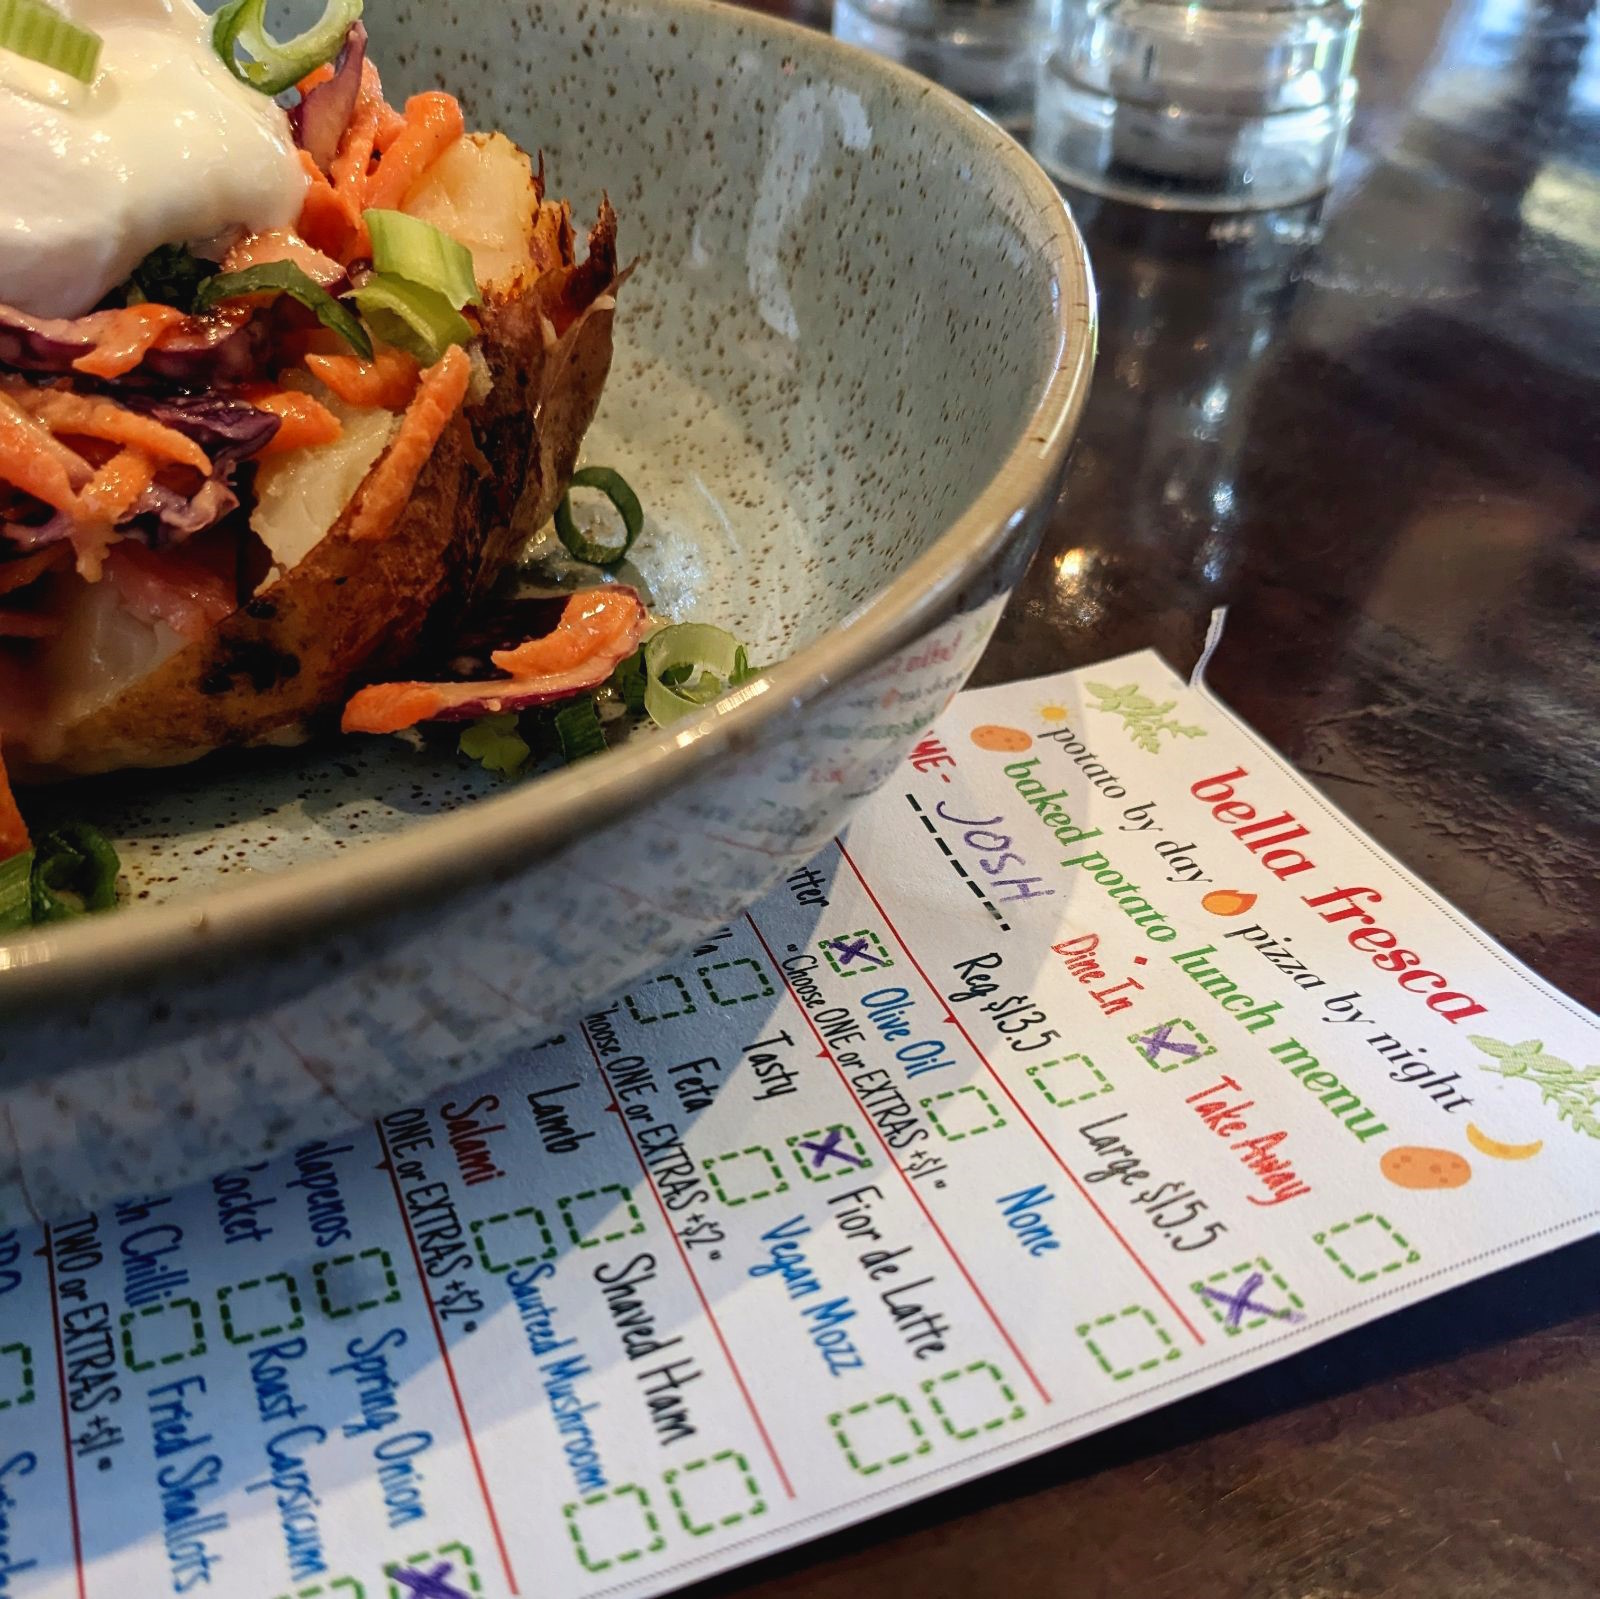 bella fresca
potato by day pizza by night
baked potato lunch menu
JOSH Dine In Take Away
Reg $13.5 Large $15.5
Olive Oil None
"Choose ONE or EXTRAS +$1"
Tasty Fior de Latte
Feta Vegan Mozz
ONE or EXTRAS +$2"
Lamb Shaved Ham
Salami Sauteed Mushroom
ONE or EXTRAS +$2"
Spring Onion
Roast Capsicum
Chilli Fried Shallots
TWO or EXTRAS +$1"